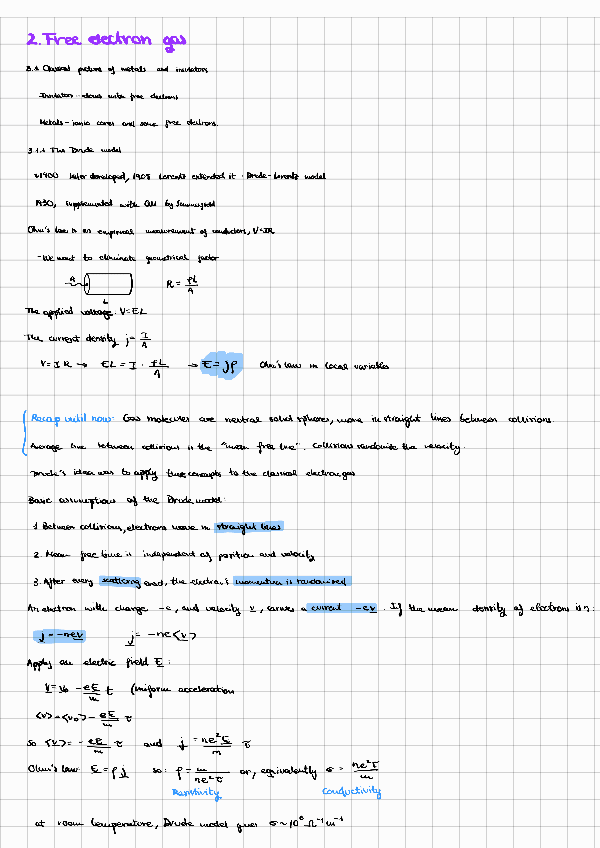 2. Free electron gas
3.1 Classical picture of metals and insulators
Insulators - atoms with free electrons
Metals - ionic cores and some free electrons.
3.1.1 The Drude model
~1900 later developed, 1905 Lorentz extended it - Drude-Lorentz model
1930, supplemented with QM by Sommerfeld
Ohm's law is an empirical measurement of conductors, V=IR
- We want to eliminate geometrical factor
A R = ρL/A
L
The applied voltage. V=EL
The current density j = I/A
V=IR → EL = I · ρL/A → E=jρ Ohm's law in local variables
Recap until now: Gas molecules are neutral solid spheres, move in straight lines between collisions.
Average time between collisions is the "mean free time". Collisions randomise the velocity.
Drude's idea was to apply these concepts to the classical electron gas
Basic assumptions of the Drude model:
1. Between collisions, electrons move in straight lines
2. Mean free time is independent of position and velocity
3. After every scattering event, the electron's momentum is randomised
An electron with charge -e, and velocity v, carries a current -ev. If the mean density of electrons is n:
j = -nev j = -ne<v>
Apply an electric field E:
v = v₀ - eE/m t (uniform acceleration
<v> = <v₀> - eE/m τ
so <v> = - eE/m τ and j = ne²E/m τ
Ohm's law: E = ρ j so: ρ = m/ne²τ or, equivalently σ = ne²τ/m
Resistivity Conductivity
at room temperature, Drude model gives σ ~ 10⁶ Ω⁻¹ m⁻¹